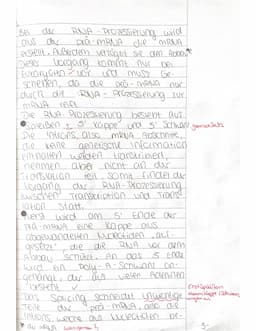 Bei der RNA-Prozessierung wird
aus der prä-mRNA die mRNA
erstellt. Außerdem verzögert sie den Abbau.
Dieser Vorgang kommt nur bei
Eukaryoten vor und muss ge-
schehen, da die prä-mRNA nur
durch die RNA-Prozessierung zur
mRNA reift.
Die RNA-Prozessierung besteht aus
Spleißen + 5' Kappe und 3' Schwanz
Die Introns, also mRNA Abschnitte,
die keine genetische Information
enthalten werden transkribiert,
nehmen aber nicht an der
Translation teil, somit findet der
Vorgang der RNA-Prozessierung
zwischen Transkription und Trans-
lation statt.
Zuerst wird am 5' Ende der
prä-mRNA eine Kappe aus
abgewandelten Nucleotiden auf-
gesetzt, die die RNA vor dem
Abbau schützt. An das 3' Ende
wird ein Poly-A-Schwanz an-
gehängt, der aus vielen Adeninen
besteht.
Das Splicing schneidet unwichtige
Teile der prä-mRNA, also die
Introns, welche aus Nucleotiden be-